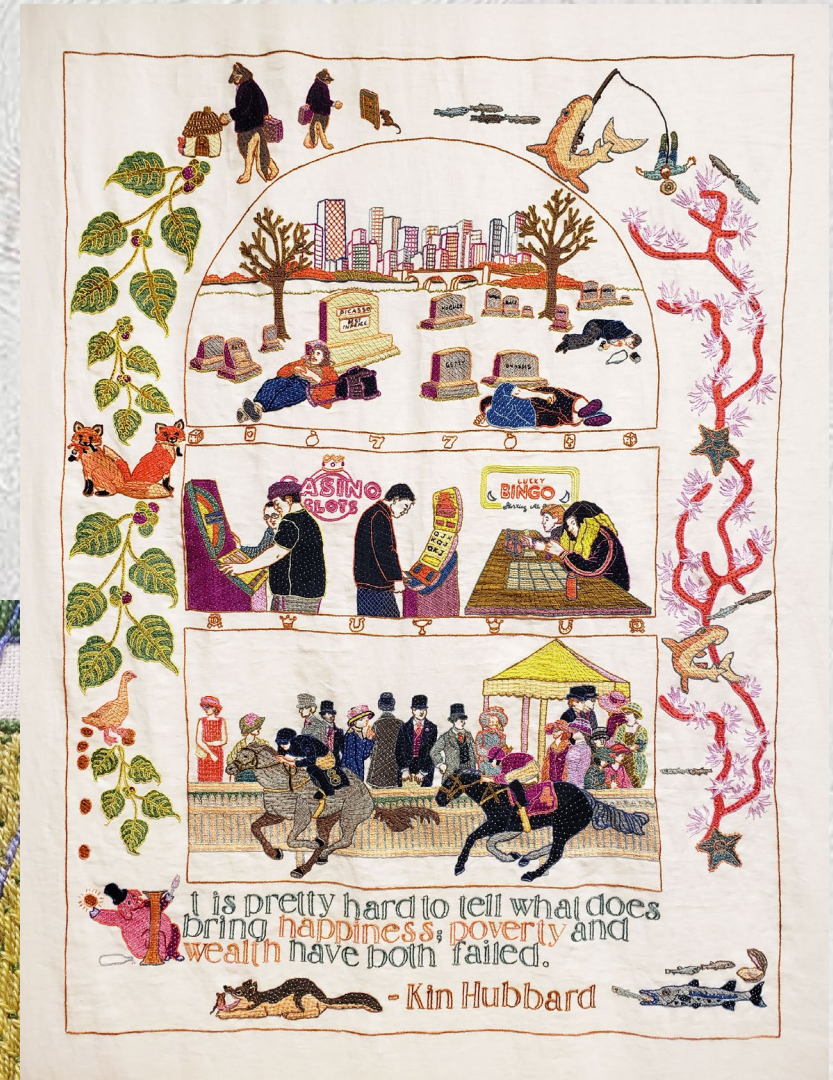 PICASSO
HUGHES
GETTY
CASINO
SLOTS
LUCKY
BINGO
It is pretty hard to tell what does
bring happiness; poverty and
wealth have both failed.
- Kin Hubbard